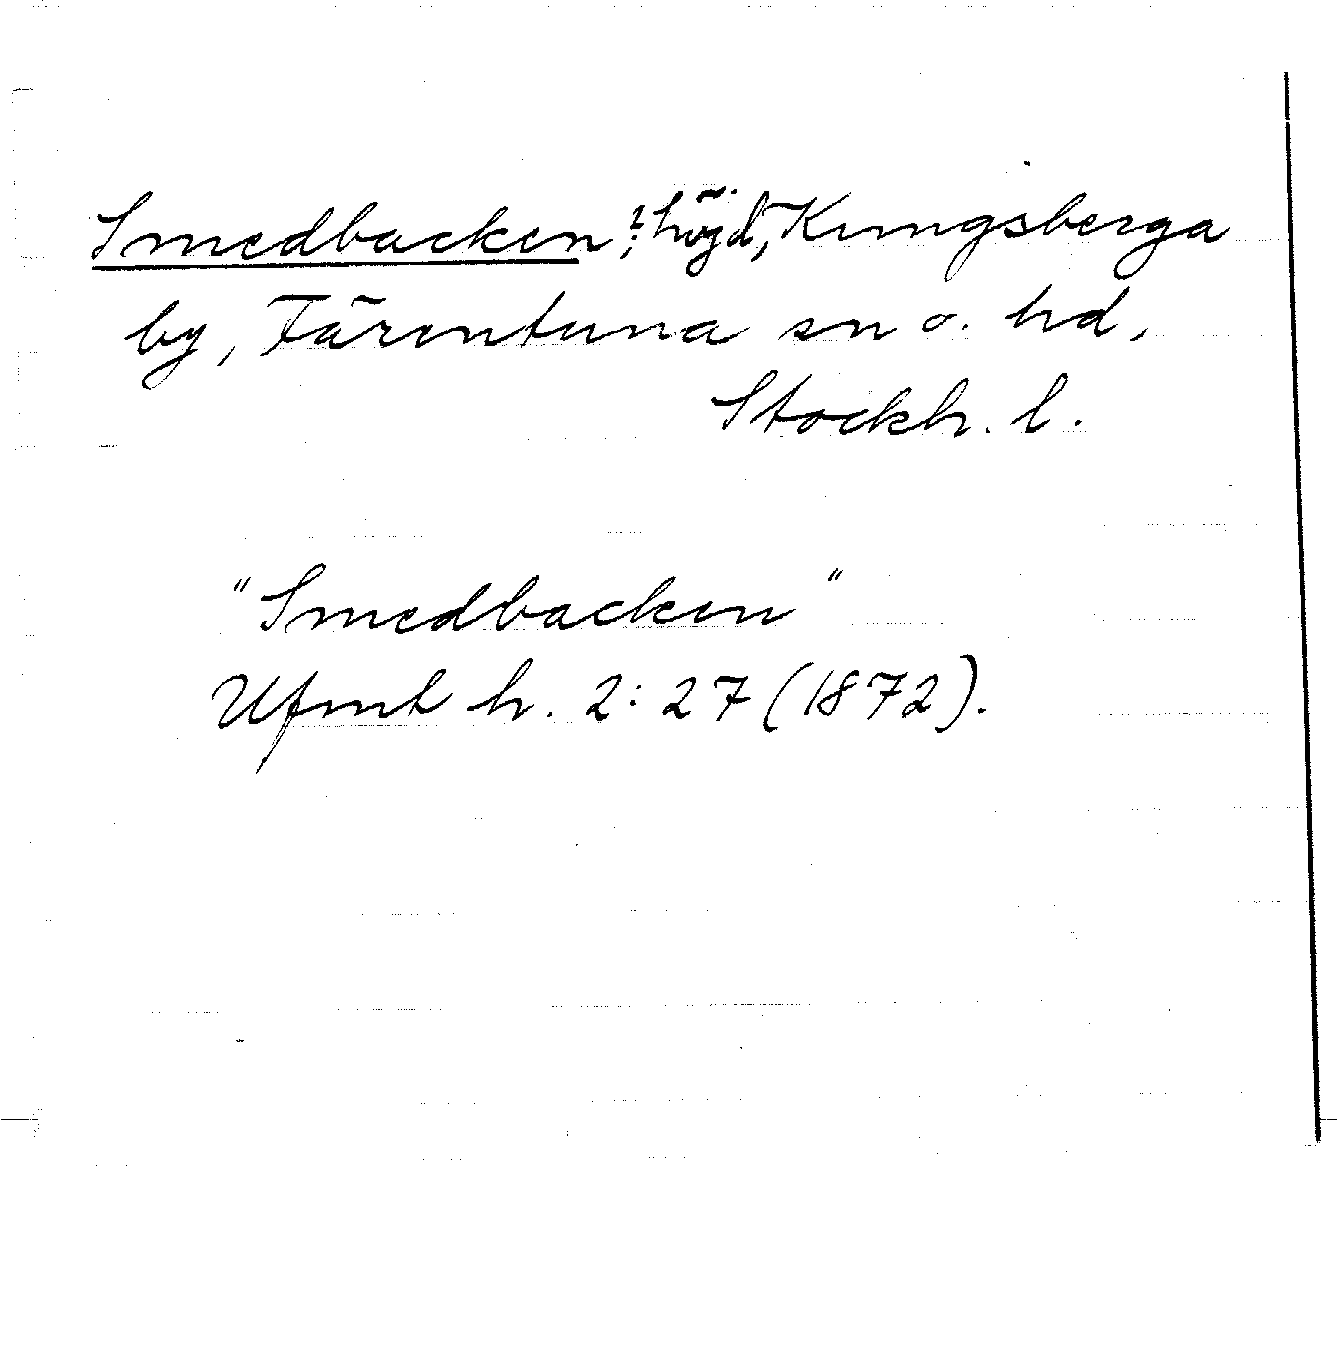 Smedbacken?, höjd, Kungsberga
by, Färentuna sn o. hd,
Stockh. l.
"Smedbacken"
Ufmt h. 2:27 (1872).